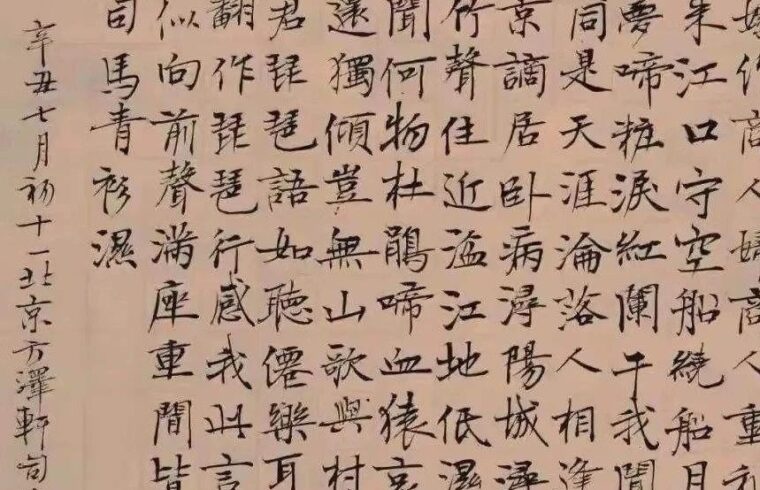 嫁作商人婦商人重利
来江口守空船繞船月
夢啼粧淚紅闌干我聞
同是天涯淪落人相逢
京謫居卧病潯陽城潯
竹聲住近湓江地低濕
聞何物杜鵑啼血猿哀
還獨傾豈無山歌與村
君琵琶語如聽僊樂耳
翻作琵琶行感我此言
似向前聲滿座重聞皆
司馬青衫濕
辛丑七月初十一北京方澤軒